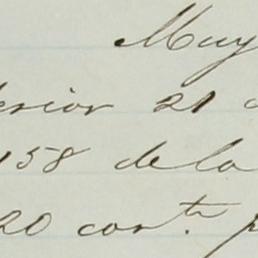 Muy
erior 21
158 de la
20 cor.te